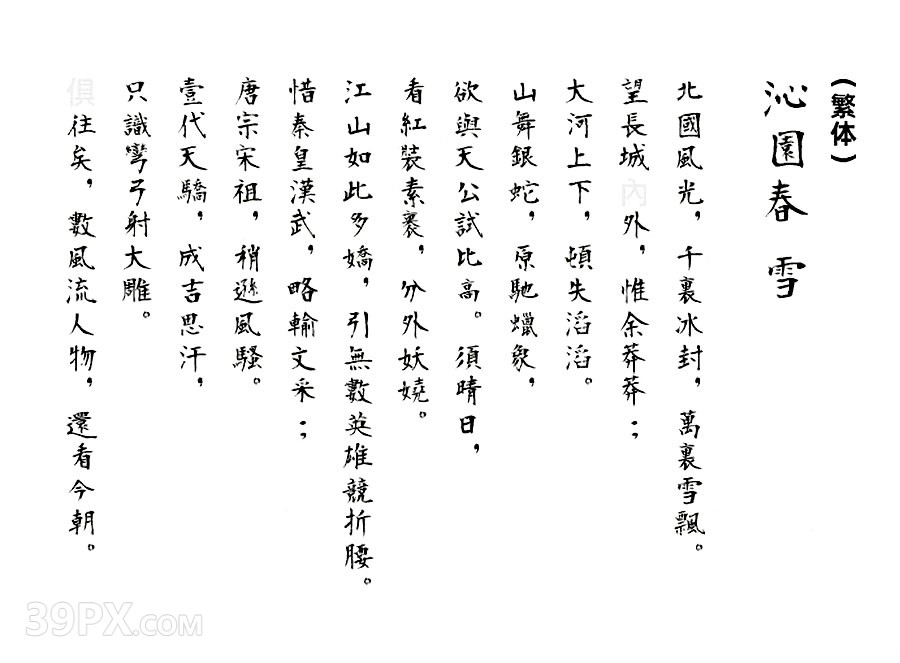 (繁体)
沁園春 雪
北國風光，千裏冰封，萬裏雪飄。
望長城內外，惟余莽莽；
大河上下，頓失滔滔。
山舞銀蛇，原馳蠟象，
欲與天公試比高。須晴日，
看紅裝素裹，分外妖嬈。
江山如此多嬌，引無數英雄競折腰。
惜秦皇漢武，略輸文采；
唐宗宋祖，稍遜風騷。
壹代天驕，成吉思汗，
只識彎弓射大雕。
俱往矣，數風流人物，還看今朝。
39PX.COM